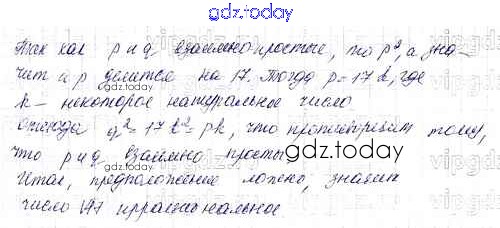 gdz.today
Так как p и q взаимно простые, то p², а зна-
чит и p делится на 17. Тогда p = 17k, где
k – некоторое натуральное число
gdz.today
откуда q² = 17k² = pk, что противоречит тому,
что p и q взаимно просты
gdz.today
Итак, предположение ложно, значит
число √17 иррациональное
gdz.today